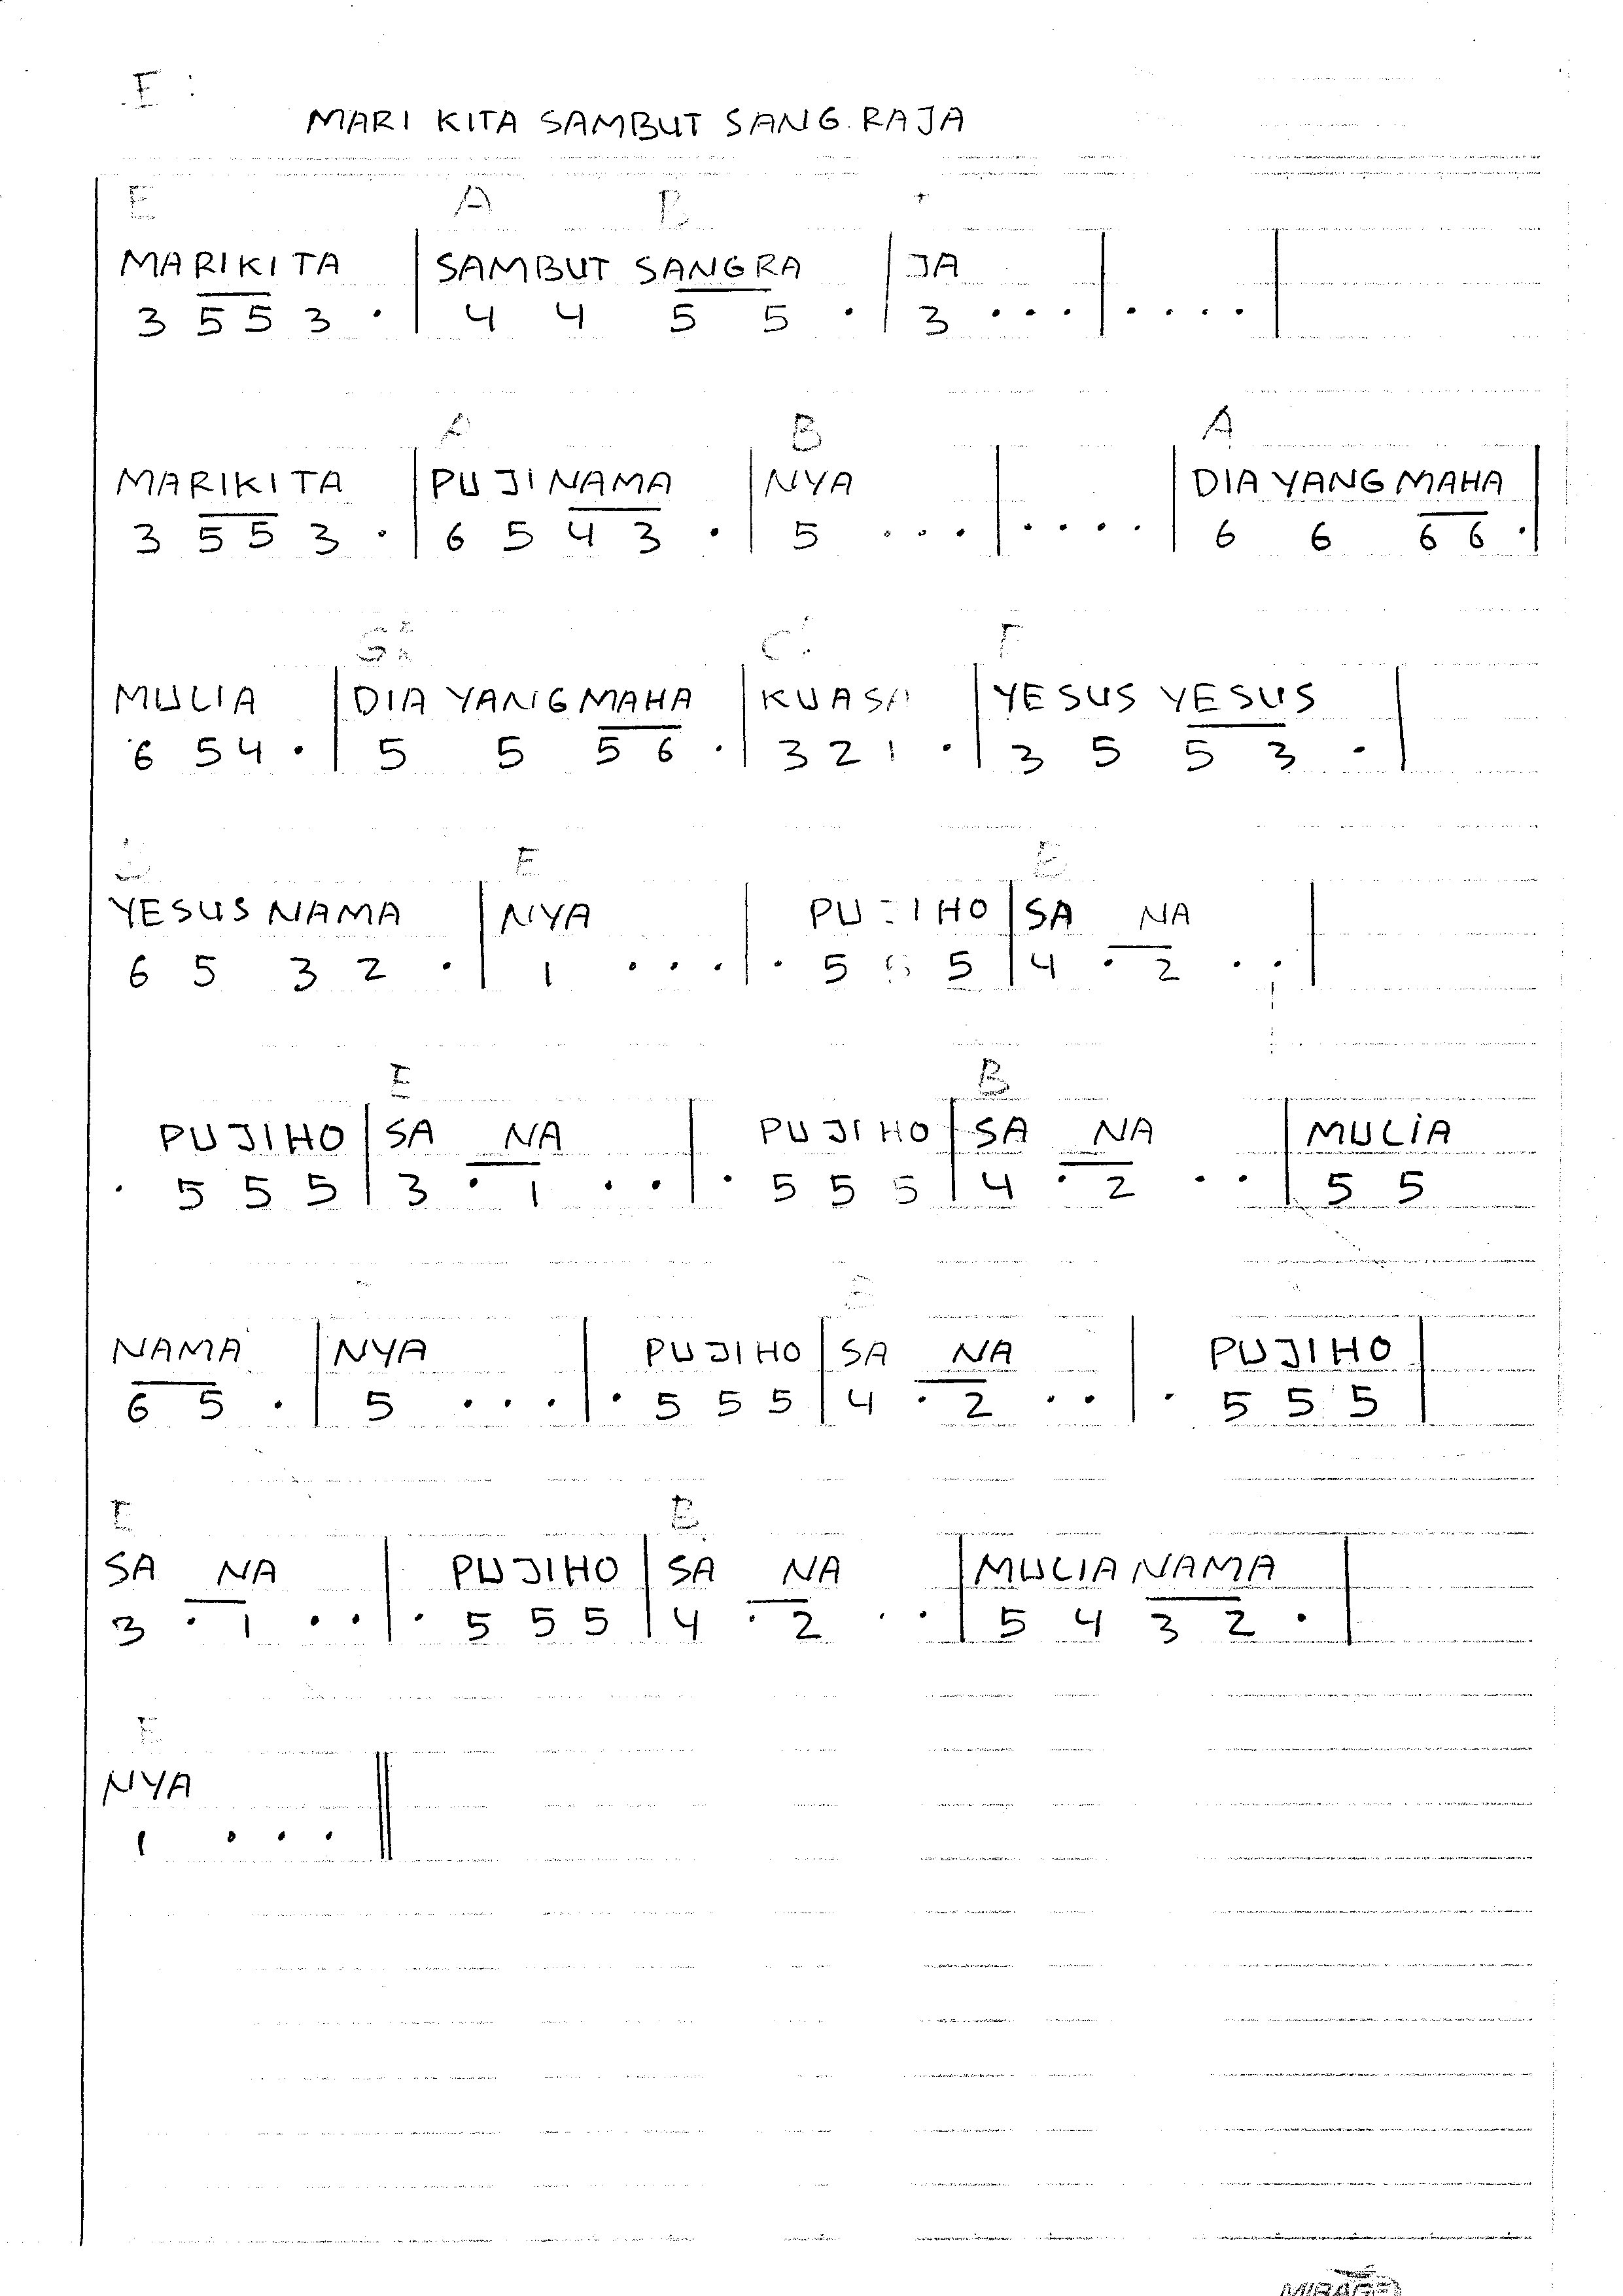 E :
MARI KITA SAMBUT SANG RAJA
E A B
MARIKITA | SAMBUT SANGRA | JA | |
3 5 5 3 . | 4 4 5 5 . | 3 . . . | . . . . |
A B A
MARIKITA | PUJI NAMA | NYA | | DIA YANG MAHA |
3 5 5 3 . | 6 5 4 3 . | 5 . . . | . . . . | 6 6 6 6 . |
MULIA | DIA YANG MAHA | KUASA | YESUS YESUS |
6 5 4 . | 5 5 5 6 . | 3 2 1 . | 3 5 5 3 . |
E E
YESUS NAMA | NYA | PUJIHO | SA NA |
6 5 3 2 . | 1 . . . | . 5 5 5 | 4 . 2 . . |
E B
PUJIHO | SA NA | PUJIHO | SA NA | MULIA
. 5 5 5 | 3 . 1 . . | . 5 5 5 | 4 . 2 . . | 5 5
NAMA | NYA | PUJIHO | SA NA | PUJIHO |
6 5 . | 5 . . . | . 5 5 5 | 4 . 2 . . | . 5 5 5 |
E B
SA NA | PUJIHO | SA NA | MULIA NAMA |
3 . 1 . . | . 5 5 5 | 4 . 2 . . | 5 4 3 2 . |
E
NYA ||
1 . . . ||
MIRAGE